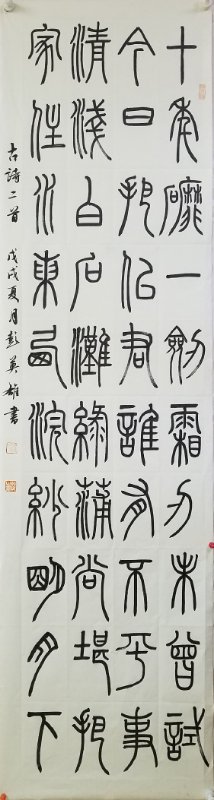 十年磨一劍霜刃未曾試
今日把似君誰有不平事
清淺白石灘綠蒲尚堪把
家住水東西浣紗明月下
古詩二首 戊戌夏月彭英雄書